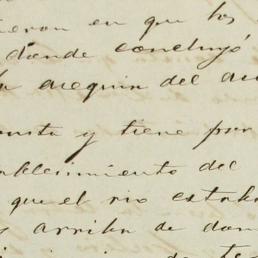 ieron en que los
donde concluyó
acequia del
usta y tiene por
ablecimiento del
que el rio estaba
s arriba de don